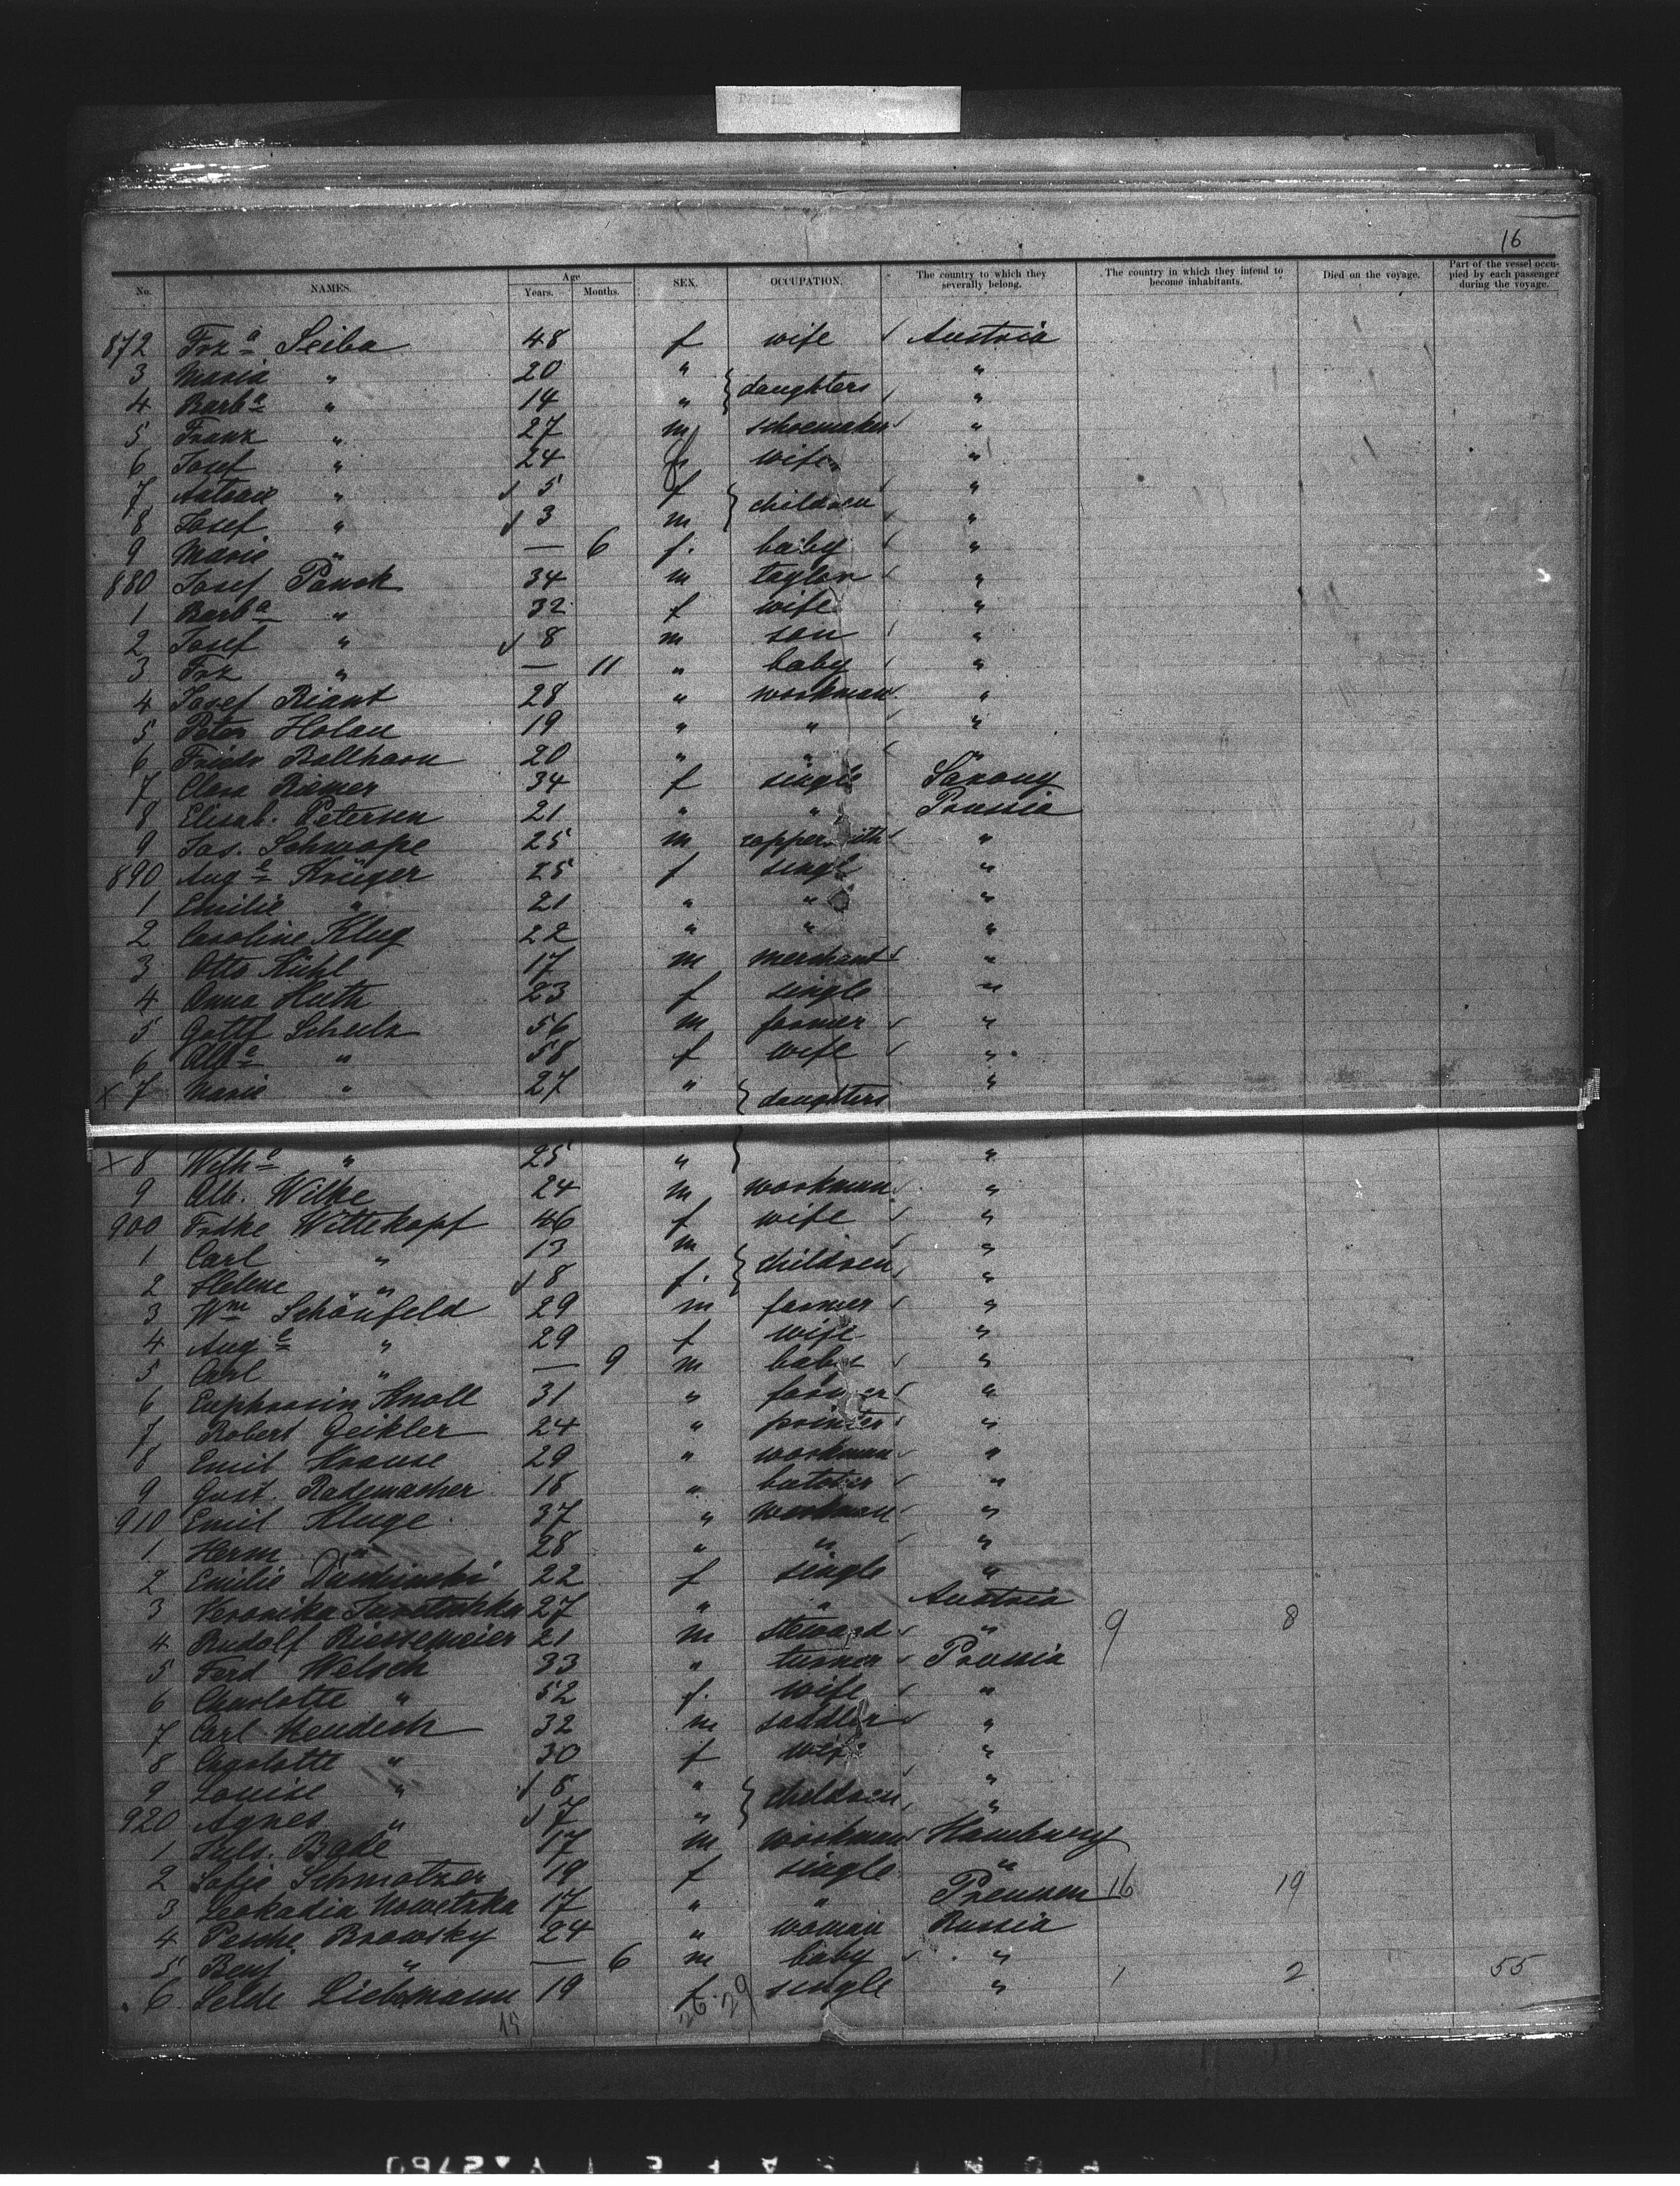 16
No. NAMES. Age Years. Months. SEX. OCCUPATION. The country to which they severally belong. The country in which they intend to become inhabitants. Died on the voyage. Part of the vessel occupied by each passenger during the voyage.
872 Frzª Seiba 48 f wife Austria
3 Maria " 20 " } daughters "
4 Barbª " 14 " "
5 Franz " 27 m shoemaker "
6 Josef " 24 f wife "
7 Antonie " 5 f } children "
8 Josef " 3 m "
9 Marie " — 6 f. baby "
880 Josef Panok 34 m taylor "
1 Barbª " 32 f wife "
2 Josef " 8 m son "
3 Frz " — 11 " baby "
4 Josef Riant 28 " workman "
5 Peter Holan 19 " " "
6 Friedr Ballhorn 20 " " "
7 Clara Riemer 34 f single Saxony
8 Elisab. Petersen 21 " " Prussia
9 Jos. Schwope 25 m coppersmith "
890 Augᵉ Krüger 25 f single "
1 Emilie " 21 " " "
2 Caroline Klug 22 " " "
3 Otto Kühl 17 m merchant "
4 Anna Huth 23 f single "
5 Gottf Schulz 56 m farmer "
6 " 58 f wife "
x 7 Marie " 27 " } daughters "
x 8 Wilhᵉ " 25 " } "
9 Alb. Wilke 24 m workman "
900 Frdke Wittekopf 46 f wife "
1 Carl " 13 m } children "
2 Helene " 8 f. "
3 Wm Schönfeld 29 m farmer "
4 Augᵉ " 29 f wife "
5 Carl " — 9 m baby "
6 Euphrosin Knoll 31 " farmer "
7 Robert Geikler 24 " printer "
8 Emil Krause 29 " workman "
9 Gust. Rademacher 18 " butcher "
910 Emil Kluge 37 " workman "
1 Herm " 28 " " "
2 Emilie 22 f single "
3 Veronika 27 " " Austria
4 Rudolf Riessemeier 21 m steward " 9 8
5 Ferd Welsch 33 " turner Prussia
6 Charlotte " 52 f. wife "
7 Carl Heudech 32 m saddler "
8 Charlotte " 30 f wife "
9 Louise " 8 " } children "
920 Agnes " 7 " "
1 Juls. Bade 17 m workman Hamburg
2 Sofie Schmatzer 19 f single "
3 Leokadia Nowetzka 17 " " Preussen 16 19
4 Pesche Browsky 24 " woman Russia
5 Benj " — 6 m baby "
6 Selde Liebmann 19 f. single " 1 2 55
26.29